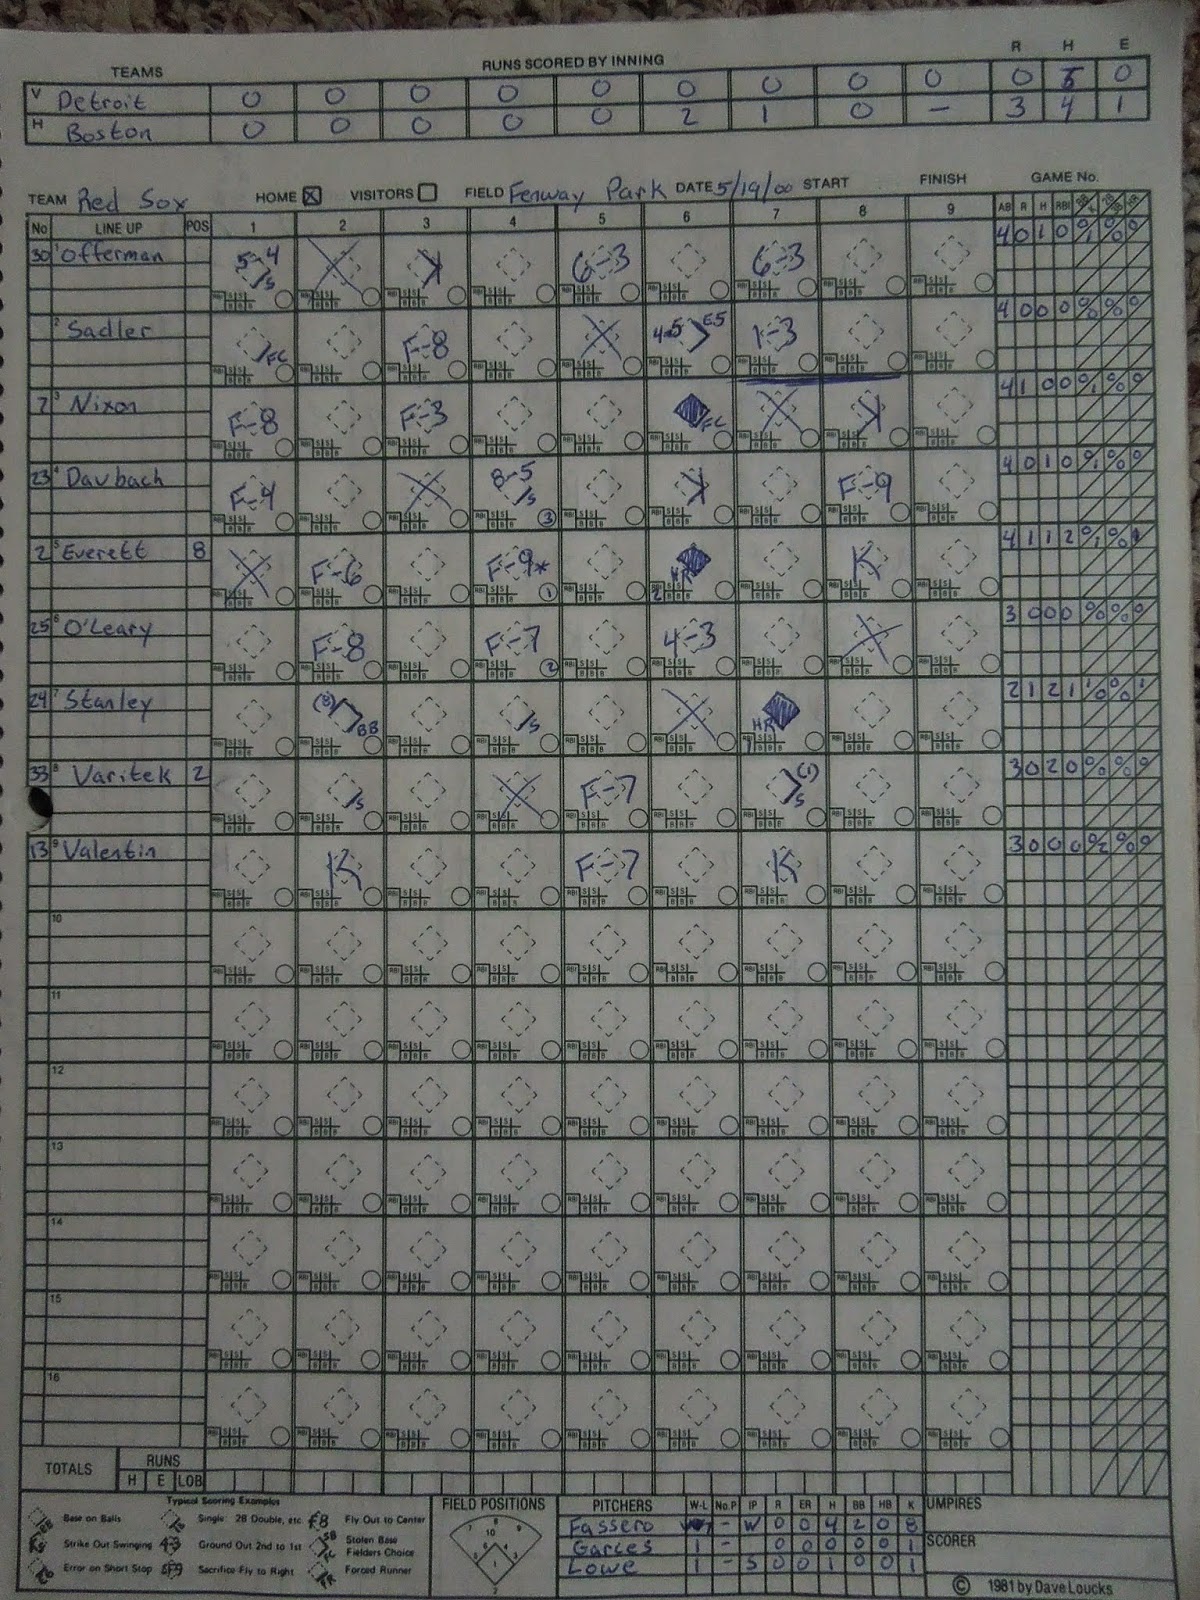 TEAMS RUNS SCORED BY INNING R H E
V Detroit 0 0 0 0 0 0 0 0 0 0 5 0
H Boston 0 0 0 0 0 2 1 0 – 3 4 1
TEAM Red Sox HOME X VISITORS FIELD Fenway Park DATE 5/19/00 START FINISH GAME No.
No LINE UP POS 1 2 3 4 5 6 7 8 9 AB R H RBI
30 1 Offerman 5-4 S K 6-3 6-3 4 0 1 0
2 Sadler FC F-8 4-5 E5 1-3 4 0 0 0
7 3 Nixon F-8 F-3 FC K 4 1 0 0
23 4 Daubach F-4 8-5 S 3 K F-9 4 0 1 0
2 5 Everett 8 F-6 F-9* 1 HR 2 K 4 1 1 2
25 6 O'Leary F-8 F-7 2 4-3 3 0 0 0
24 7 Stanley (8) BB S HR 1 2 1 2 1
33 8 Varitek 2 S F-7 (1) S 3 0 2 0
13 9 Valentin K F-7 K 3 0 0 0
10
11
12
13
14
15
16
TOTALS RUNS
H E LOB
Typical Scoring Examples
Base on Balls Single 2B Double, etc. F8 Fly Out to Center
Strike Out Swinging 4-3 Ground Out 2nd to 1st Stolen Base Fielders Choice
Error on Short Stop Sacrifice Fly to Right Forced Runner
FIELD POSITIONS
PITCHERS W-L No.P IP R ER H BB HB K UMPIRES
Fassero – W 0 0 4 2 0 8
Garces 1 – 0 0 0 0 0 1 SCORER
Lowe 1 – S 0 0 1 0 0 1
© 1981 by Dave Loucks